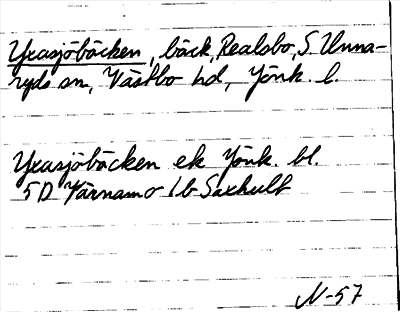 Yxasjöbäcken, bäck, Realsbo, S. Unna-
ryds sn, Västbo hd, Jönk. l.
Yxasjöbäcken ek Jönk. bl.
5D Värnamo 1b Saxhult
N-57